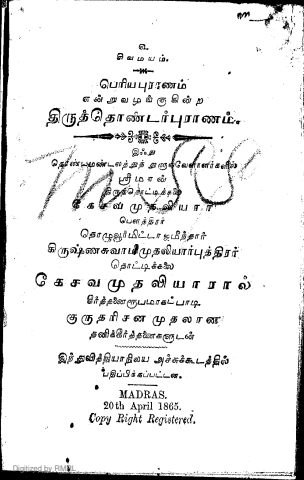 உ
சிவமயம்.
பெரியபுராணம்
என்றுவழங்குகின்ற
திருத்தொண்டர்புராணம்.
இஃது
தொண்டமண்டலத்துத் துளுவவேளாளர்களில்
ஸ்ரீமான்
திருத்தொட்டிக்கலை
கேசவமுதலியார்
பௌத்திரர்
தொழுவூர்மிட்டாஜமீந்தார்
கிருஷ்ணசுவாமிமுதலியார்புத்திரர்
தொட்டிக்கலை
கேசவமுதலியாரால்
கீர்த்தனைரூபமாகப்பாடி
குருதரிசனமுதலான
தனிக்கீர்த்தனைகளுடன்
இந்துவித்தியாநிலய அச்சுக்கூடத்தில்
பதிப்பிக்கப்பட்டன.
MADRAS.
20th April 1865.
Copy Right Registered.
Digitized by